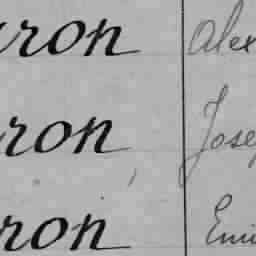 ron Alex
ron Jose
ron Emi